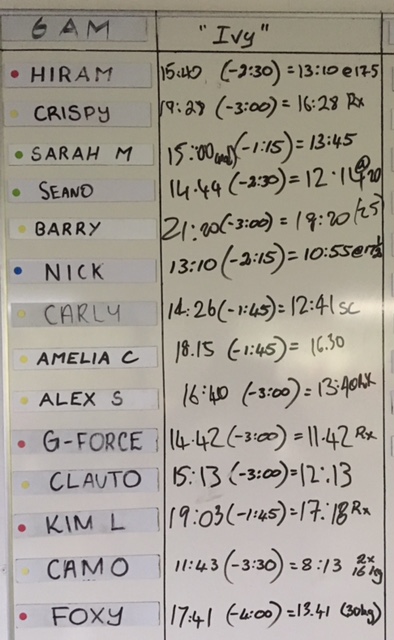 6 AM "Ivy"
HIRAM 15:40 (-2:30) = 13:10 @ 17.5
CRISPY 19:28 (-3:00) = 16:28 Rx
SARAH M 15:00 (-1:15) = 13:45
SEANO 14.44 (-2:30) = 12.14 @ 20
BARRY 21:20 (-3:00) = 19:20 /25
NICK 13:10 (-2:15) = 10:55
CARLY 14:26 (-1:45) = 12:41 SC
AMELIA C 18.15 (-1:45) = 16.30
ALEX S 16:40 (-3:00) = 13:40 RX
G-FORCE 14.42 (-3:00) = 11.42 Rx
CLAUTO 15:13 (-3:00) = 12:13
KIM L 19:03 (-1:45) = 17:18 Rx
CAMO 11:43 (-3:30) = 8:13 2x 16 kg
FOXY 17:41 (-4:00) = 13.41 (30kg)